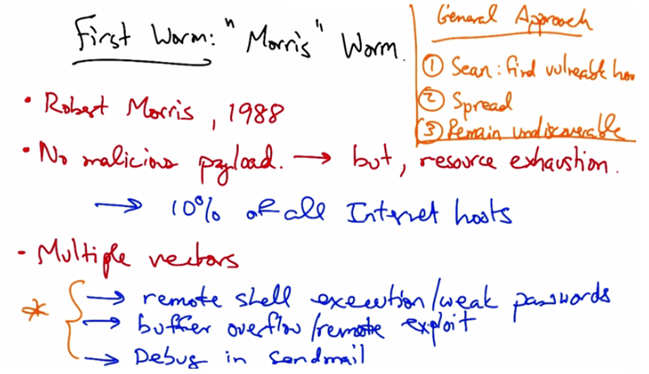 First Worm: "Morris" Worm.
General Approach
① Scan: find vulnerable hos
② Spread
③ Remain undiscoverable
• Robert Morris, 1988
• No malicious payload. → but, resource exhaustion.
→ 10% of all Internet hosts
- Multiple vectors
* { → remote shell execution/weak passwords
→ buffer overflow/remote exploit
→ Debug in sendmail